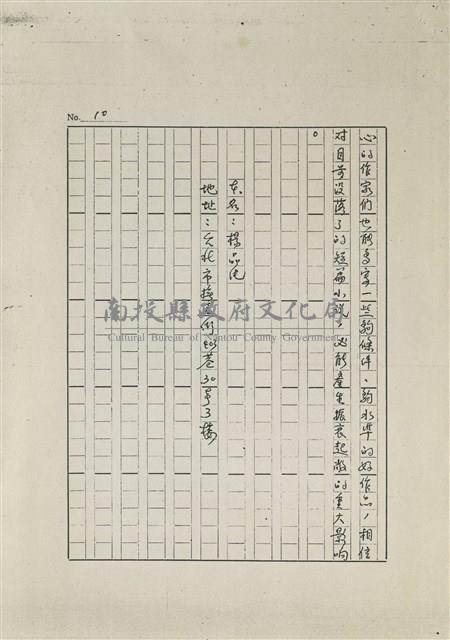 No. 10
心的作家們也能多寫一些夠條件、夠水準的好作品,相信
對目前沒落了的短篇小說,必能產生振衰起敝的重大影響
。
本名:楊品純
地址:台北市
巷30弄3樓
南投縣政府文化局
Cultural Bureau of Nantou County Government